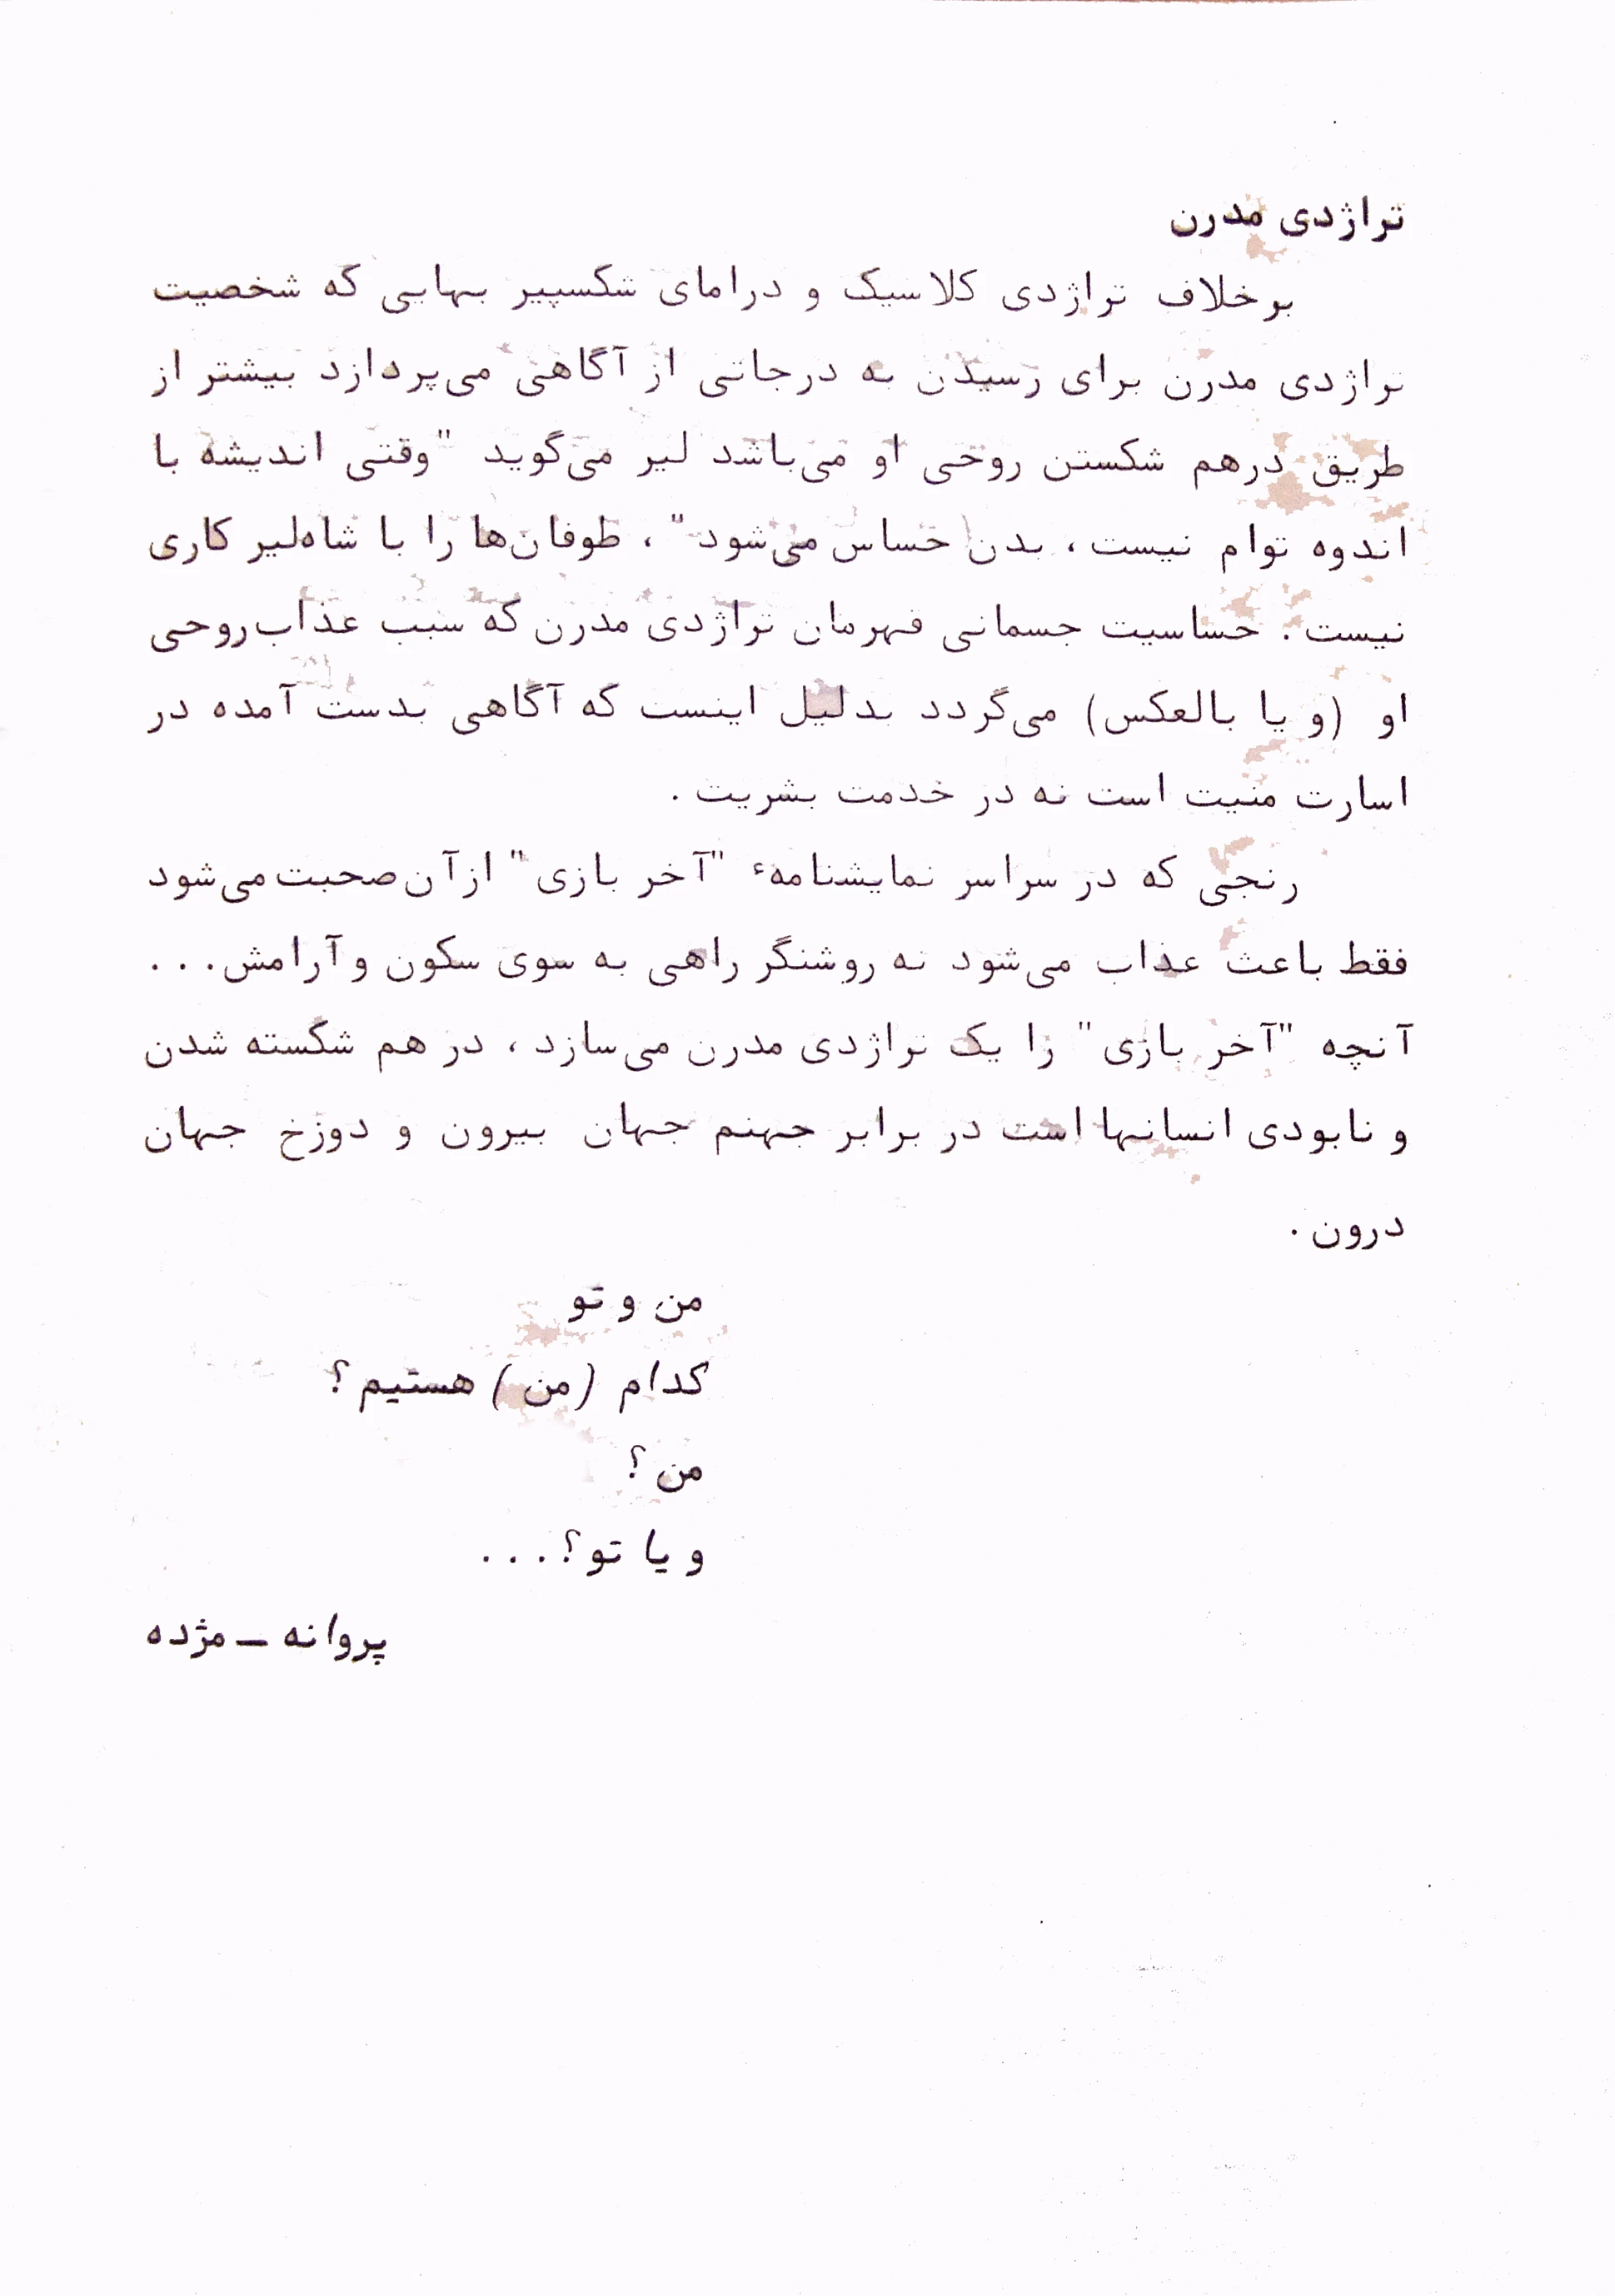 تراژدی مدرن
برخلاف تراژدی کلاسیک و درامای شکسپیر بهایی که شخصیت
تراژدی مدرن برای رسیدن به درجاتی از آگاهی می‌پردازد بیشتر از
طریق درهم شکستن روحی او می‌باشد لیر می‌گوید "وقتی اندیشه با
اندوه توام نیست، بدن حساس می‌شود"، طوفان‌ها را با شاه‌لیر کاری
نیست. حساسیت جسمانی قهرمان تراژدی مدرن که سبب عذاب‌روحی
او (و یا بالعکس) می‌گردد بدلیل اینست که آگاهی بدست آمده در
اسارت منیت است نه در خدمت بشریت.
رنجی که در سراسر نمایشنامهٔ "آخر بازی" ازآن‌صحبت‌می‌شود
فقط باعث عذاب می‌شود نه روشنگر راهی به سوی سکون و آرامش...
آنچه "آخر بازی" را یک تراژدی مدرن می‌سازد، در هم شکسته شدن
و نابودی انسانها است در برابر جهنم جهان بیرون و دوزخ جهان
درون.
من و تو
کدام (من) هستیم؟
من؟
و یا تو؟...
پروانه - مژده